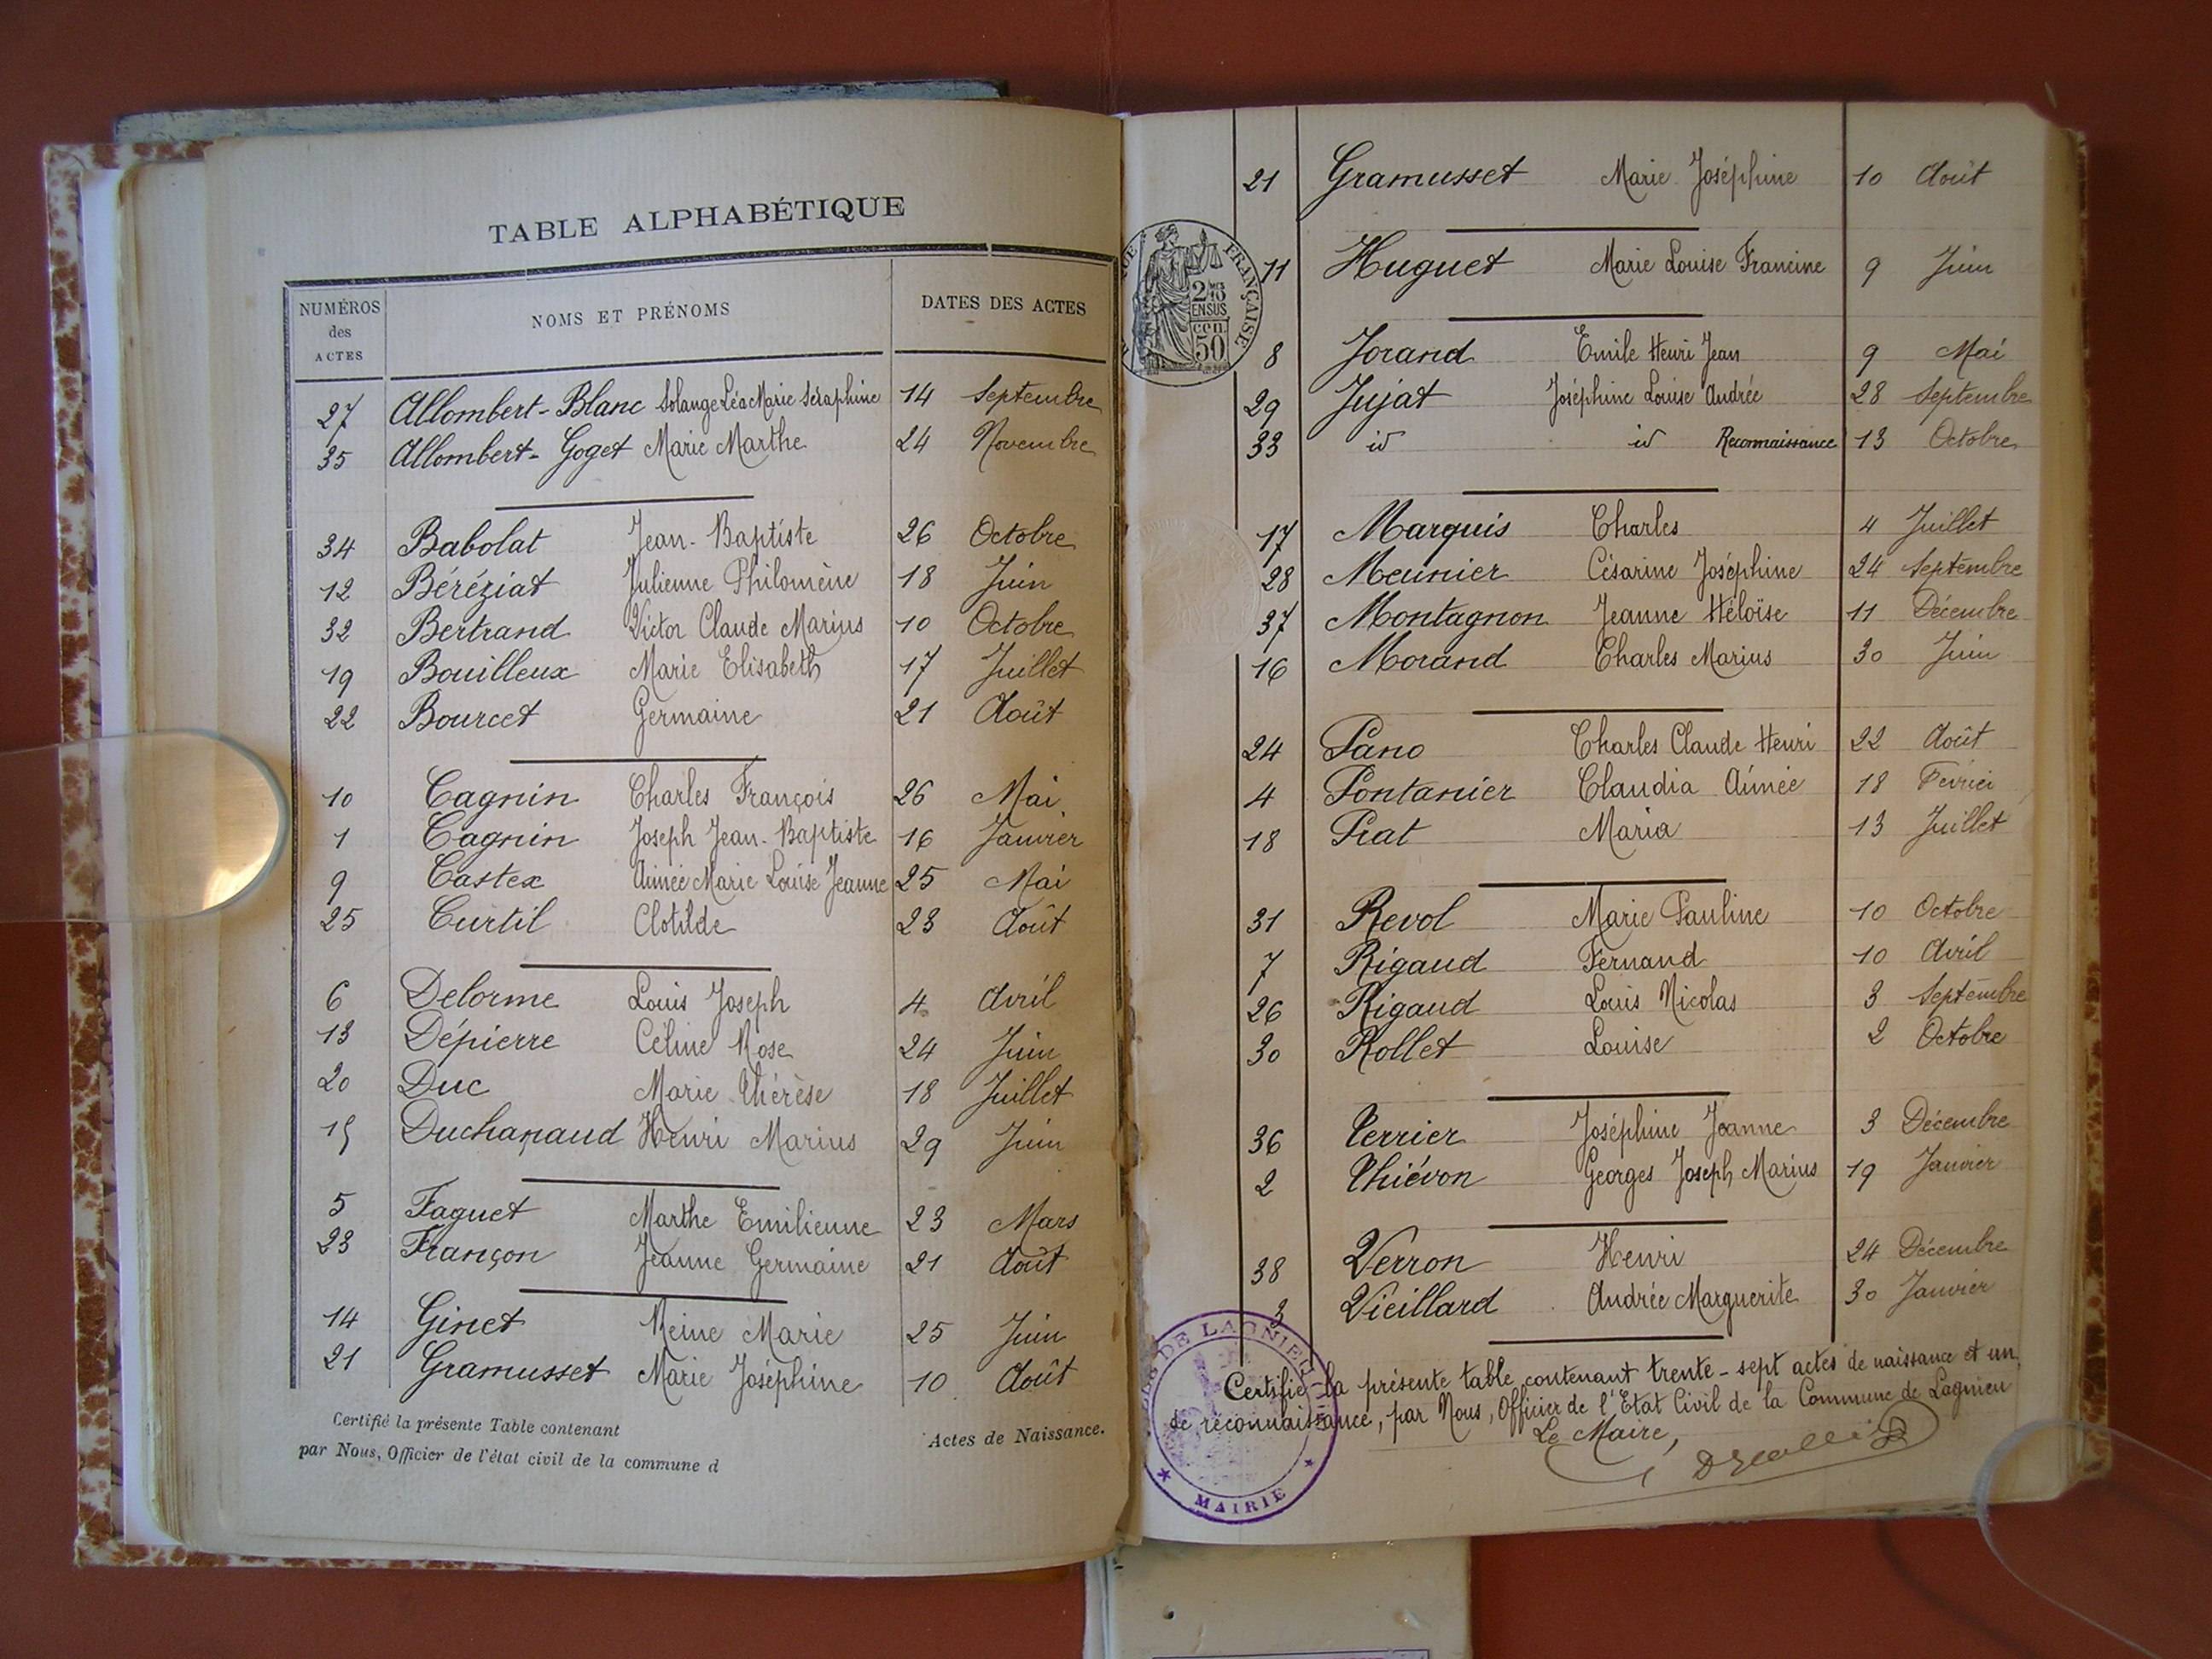 TABLE ALPHABÉTIQUE
NUMÉROS des ACTES NOMS ET PRÉNOMS DATES DES ACTES
27 Allombert-Blanc Solange Léa Marie Séraphine 14 Septembre
35 Allombert-Goget Marie Marthe 24 Novembre
34 Babolat Jean-Baptiste 26 Octobre
12 Béréziat Julienne Philomène 18 Juin
32 Bertrand Victor Claude Marius 10 Octobre
19 Bouilleux Marie Elisabeth 17 Juillet
22 Bourcet Germaine 21 Août
10 Cagnin Charles François 26 Mai
1 Cagnin Joseph Jean-Baptiste 16 Janvier
9 Castex Aimée Marie Louise Jeanne 25 Mai
25 Curtil Clotilde 23 Août
6 Delorme Louis Joseph 4 Avril
13 Dépierre Céline Rose 24 Juin
20 Duc Marie Thérèse 18 Juillet
15 Duchanaud Henri Marius 29 Juin
5 Faguet Marthe Emilienne 23 Mars
23 Françon Jeanne Germaine 21 Août
14 Ginet Reine Marie 25 Juin
21 Gramusset Marie Joséphine 10 Août
Certifié la présente Table contenant Actes de Naissance.
par Nous, Officier de l'état civil de la commune d
21 Gramusset Marie Joséphine 10 Août
FRANÇAISE
2/10 EN SUS
cen. 50
11 Huguet Marie Louise Francine 9 Juin
8 Jorand Emile Henri Jean 9 Mai
29 Jujat Joséphine Louise Andrée 28 Septembre
33 id id Reconnaissance 13 Octobre
17 Marquis Charles 4 Juillet
28 Meunier Césarine Joséphine 24 Septembre
37 Montagnon Jeanne Héloïse 11 Décembre
16 Morand Charles Marius 30 Juin
24 Pano Charles Claude Henri 22 Août
4 Pontanier Claudia Aimée 18 Février
18 Prat Maria 13 Juillet
31 Revol Marie Pauline 10 Octobre
7 Rigaud Fernand 10 Avril
26 Rigaud Louis Nicolas 3 Septembre
30 Rollet Louise 2 Octobre
36 Terrier Joséphine Jeanne 3 Décembre
2 Thiévon Georges Joseph Marius 19 Janvier
38 Verron Henri 24 Décembre
3 Vieillard Andrée Marguerite 30 Janvier
Certifié la présente table contenant trente-sept actes de naissance et un
de réconnaissance, par Nous, Officier de l'Etat Civil de la Commune de Lagnieu
Le Maire,
DE LAGNIEU
MAIRIE